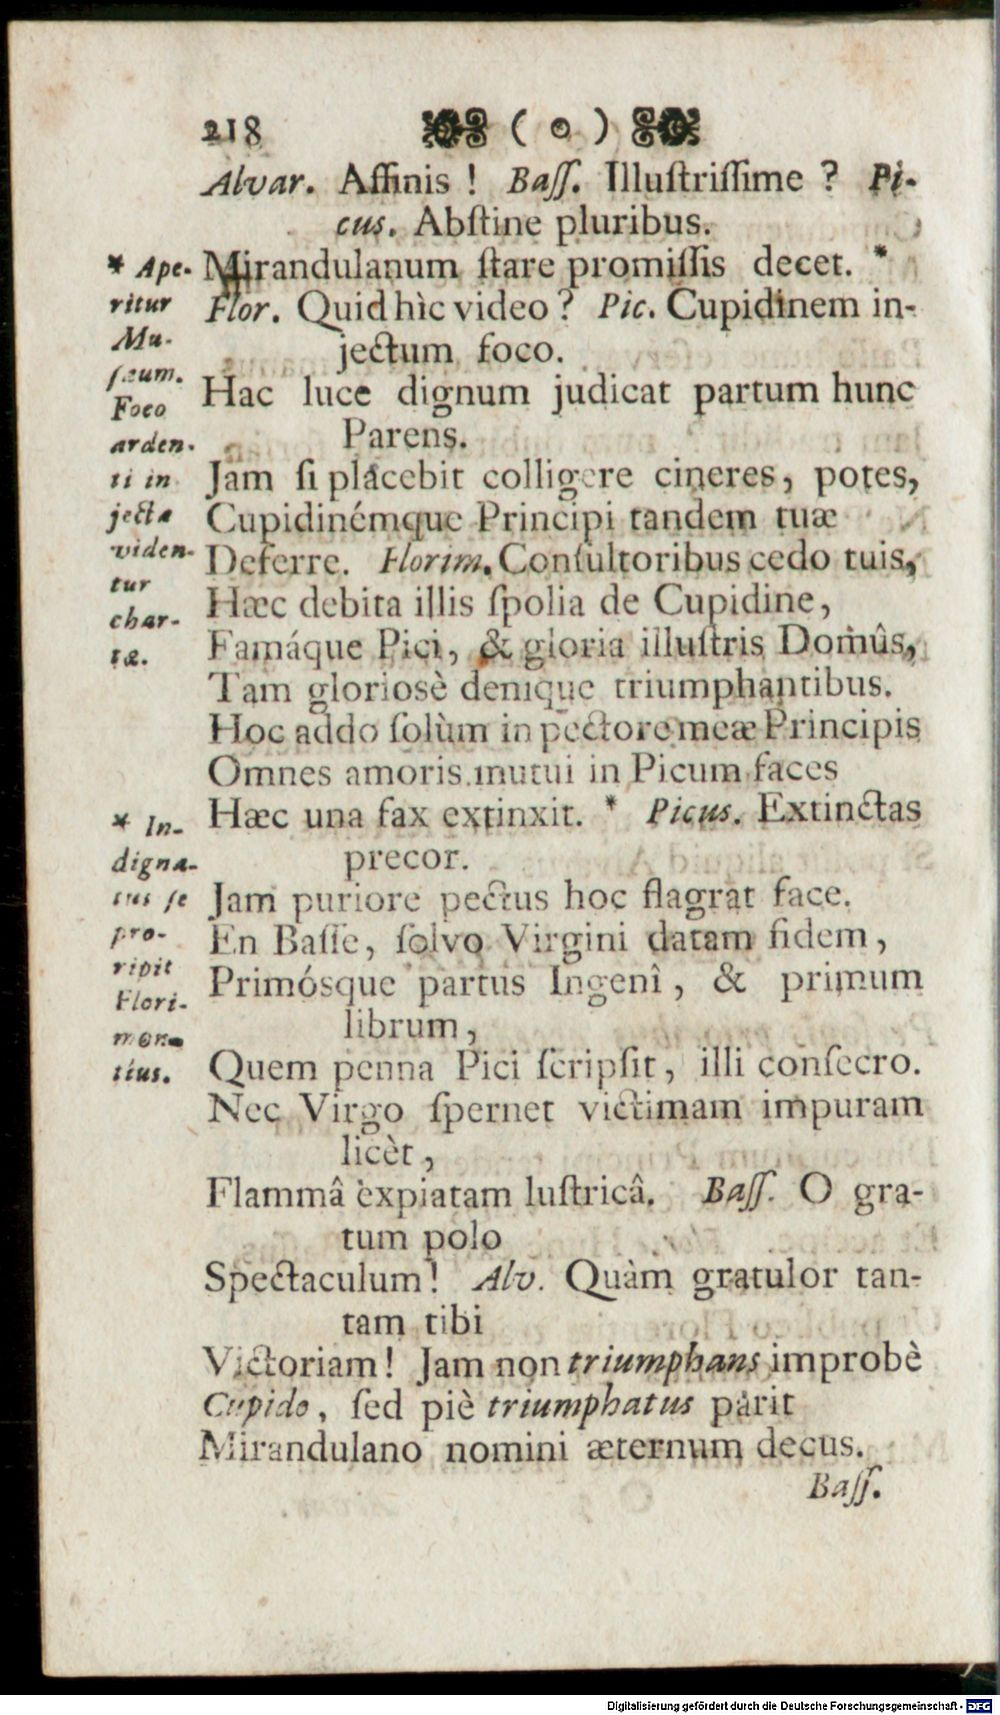 218 ( o )
Alvar. Affinis ! Baſſ. Illuſtriſſime ? Pi-
cus. Abſtine pluribus.
Mirandulanum ſtare promiſſis decet. *
Flor. Quid hìc video ? Pic. Cupidinem in-
jectum foco.
Hac luce dignum judicat partum hunc
Parens.
Jam ſi placebit colligere cineres, potes,
Cupidinémque Principi tandem tuæ
Deferre. Florim. Conſultoribus cedo tuis,
Hæc debita illis ſpolia de Cupidine,
Famáque Pici, & gloria illuſtris Domûs,
Tam gloriosè denique triumphantibus.
Hoc addo ſolùm in pectore meæ Principis
Omnes amoris mutui in Picum faces
Hæc una fax extinxit. * Picus. Extinctas
precor.
Jam puriore pectus hoc flagrat face.
En Baſſe, ſolvo Virgini datam fidem,
Primósque partus Ingenî, & primum
librum,
Quem penna Pici ſcripſit, illi conſecro.
Nec Virgo ſpernet victimam impuram
licèt,
Flammâ expiatam luſtricâ. Baſſ. O gra-
tum polo
Spectaculum! Alv. Quàm gratulor tan-
tam tibi
Victoriam! Jam non triumphans improbè
Cupido, ſed piè triumphatus parit
Mirandulano nomini æternum decus.
Baſſ.
* Ape-
ritur
Mu-
ſæum.
Foco
arden-
ti in
jecta
viden-
tur
char-
tæ.
* In-
digna-
tus ſe
pro-
ripit
Flori-
mon-
tius.
Digitalisierung gefördert durch die Deutsche Forschungsgemeinschaft - DFG